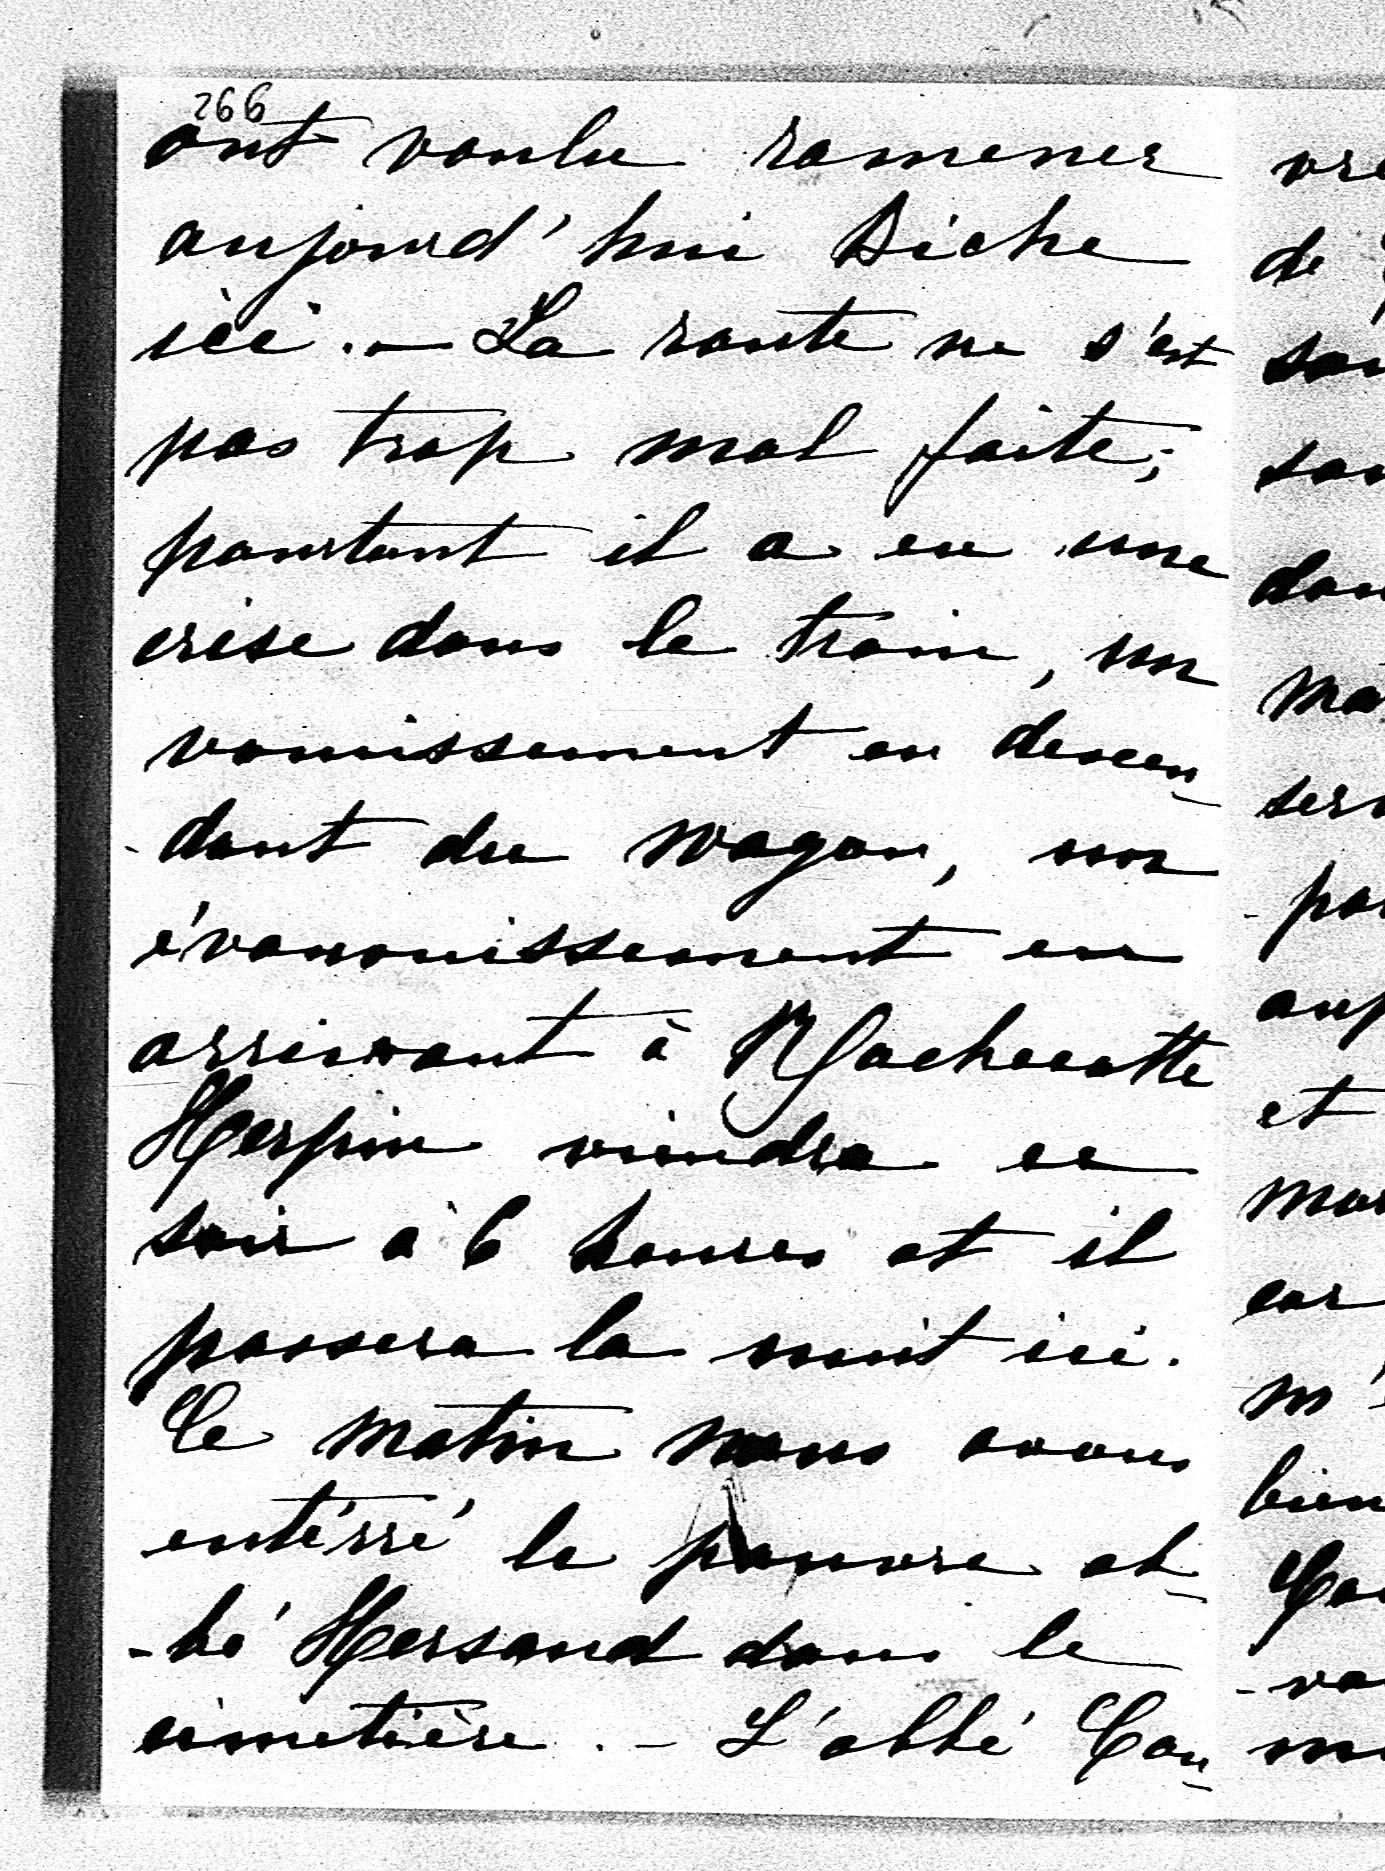 266
ont voulu ramener
aujourd'hui Biche
ici. — La route ne s'est
pas trop mal faite;
pourtant il a eu une
crise dans le train, un
vomissement en descen-
-dant du wagon, un
évanouissement en
arrivant à Machecatte
Herpin viendra ce
soir à 6 heures et il
passera la nuit ici.
Ce matin nous avons
entérré le pauvre ab-
-bé Hersand dans le
cimetière. — L'abbé Cou-
vre
de
sou
sou
dou
ma
ser
-pa
auj
et
mar
car
m'
bien
Cou
-va